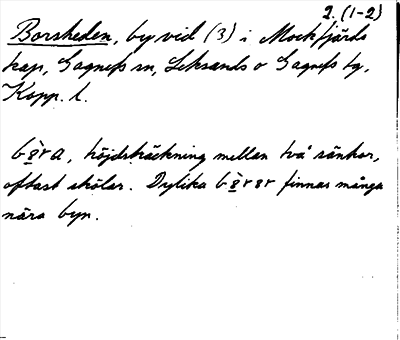 2. (1-2)
Borsheden, by vid (3) i Mockfjärds
kap, Gagnefs sn, Leksands o Gagnefs tg,
Kopp. l.
höjdsträckning mellan två sänkor,
oftast skålar. Dylika finnas många
nära byn.